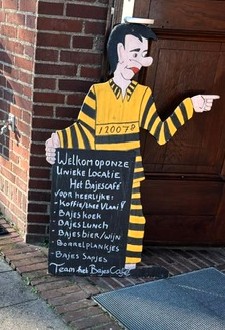 120078
Welkom op onze
Unieke Locatie
Het BajesCafé
voor heerlijke:
- Koffie/thee Vlaai
- Bajeskoek
- BajesLunch
- Bajesbier/wijn
- Borrelplankjes
- Bajes Sapjes
Team het BajesCafé